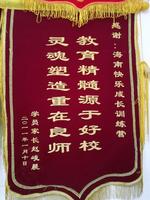 感谢：海南快乐成长训练营
教育精髓源于好校
灵魂塑造重在良师
学员家长赵峻晨
二〇一一年一月十日